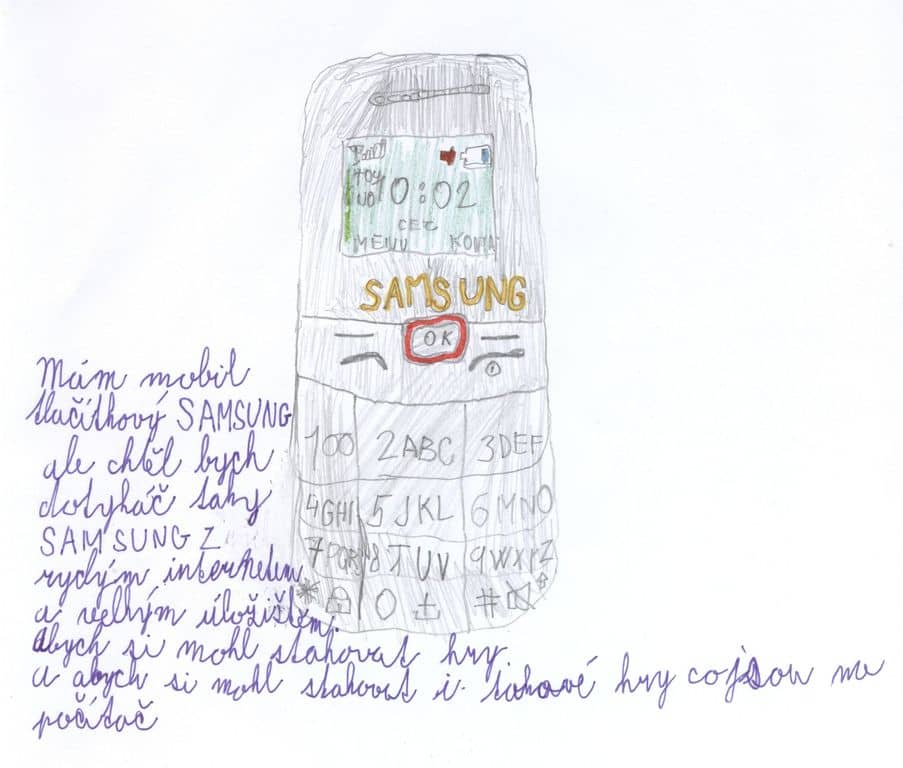 10:02
MENU
SAMSUNG
OK
100 2ABC 3DEF
4GHI 5JKL 6MNO
8TUV 9WXYZ
* 0 #
Mám mobil
tlačítkový SAMSUNG
ale chtěl bych
dotykáč taky
SAMSUNG Z
rychým internetem
a velkým úložištěm.
abych si mohl stahovat hry
a abych si mohl stahovat i takové hry co jsou na
počítač